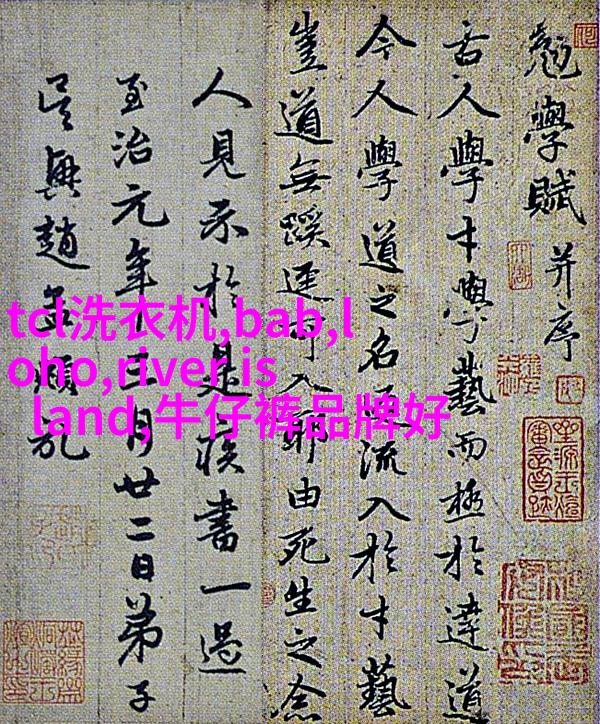 勉學賦 并序
古人學才學藝而極於達道
今人學道之名流入於才藝
豈道無蹊逕可入耶由死生之念
人見示於是書一過
至治元年月廿二日弟子
吳興趙孟頫
tcl洗衣机,bab,l
oho,river is
land,牛仔裤品牌好